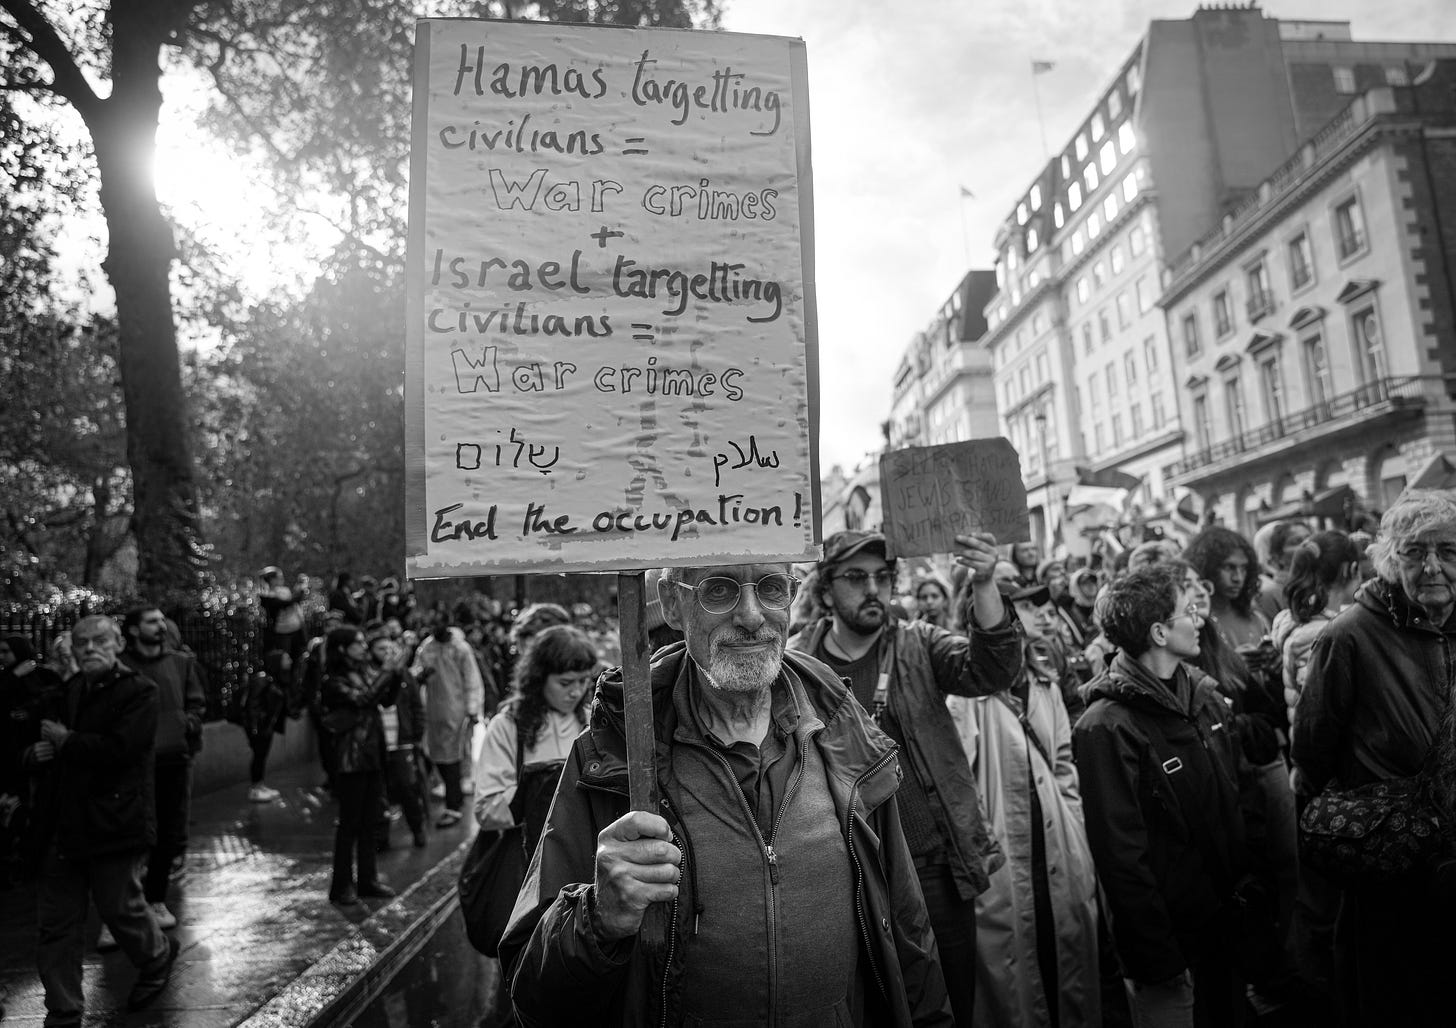 Hamas targetting
civilians =
War crimes
+
Israel targetting
civilians =
War crimes
שָלום سلام
End the occupation!
JEWS STAND
WITH PALESTINE